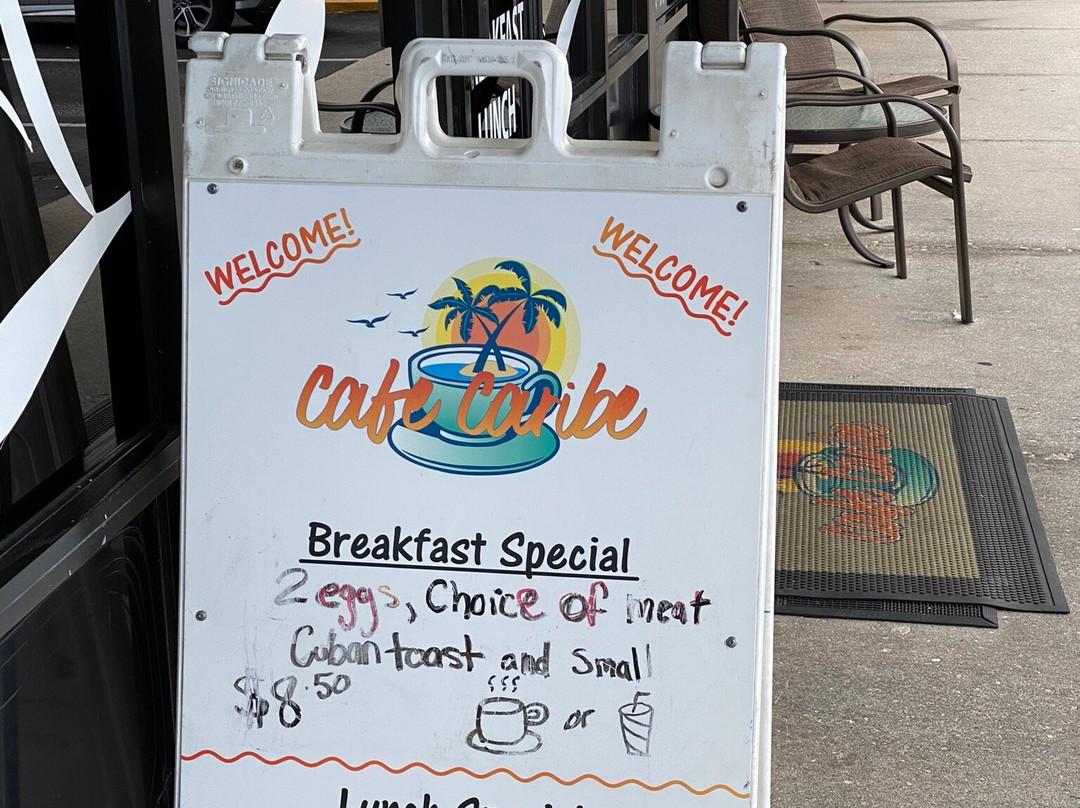 SIGNICADE
BREAKFAST
LUNCH
WELCOME!
WELCOME!
Cafe Caribe
Breakfast Special
2 eggs, Choice of meat
Cuban toast and Small
$8.50
or
Lunch Special